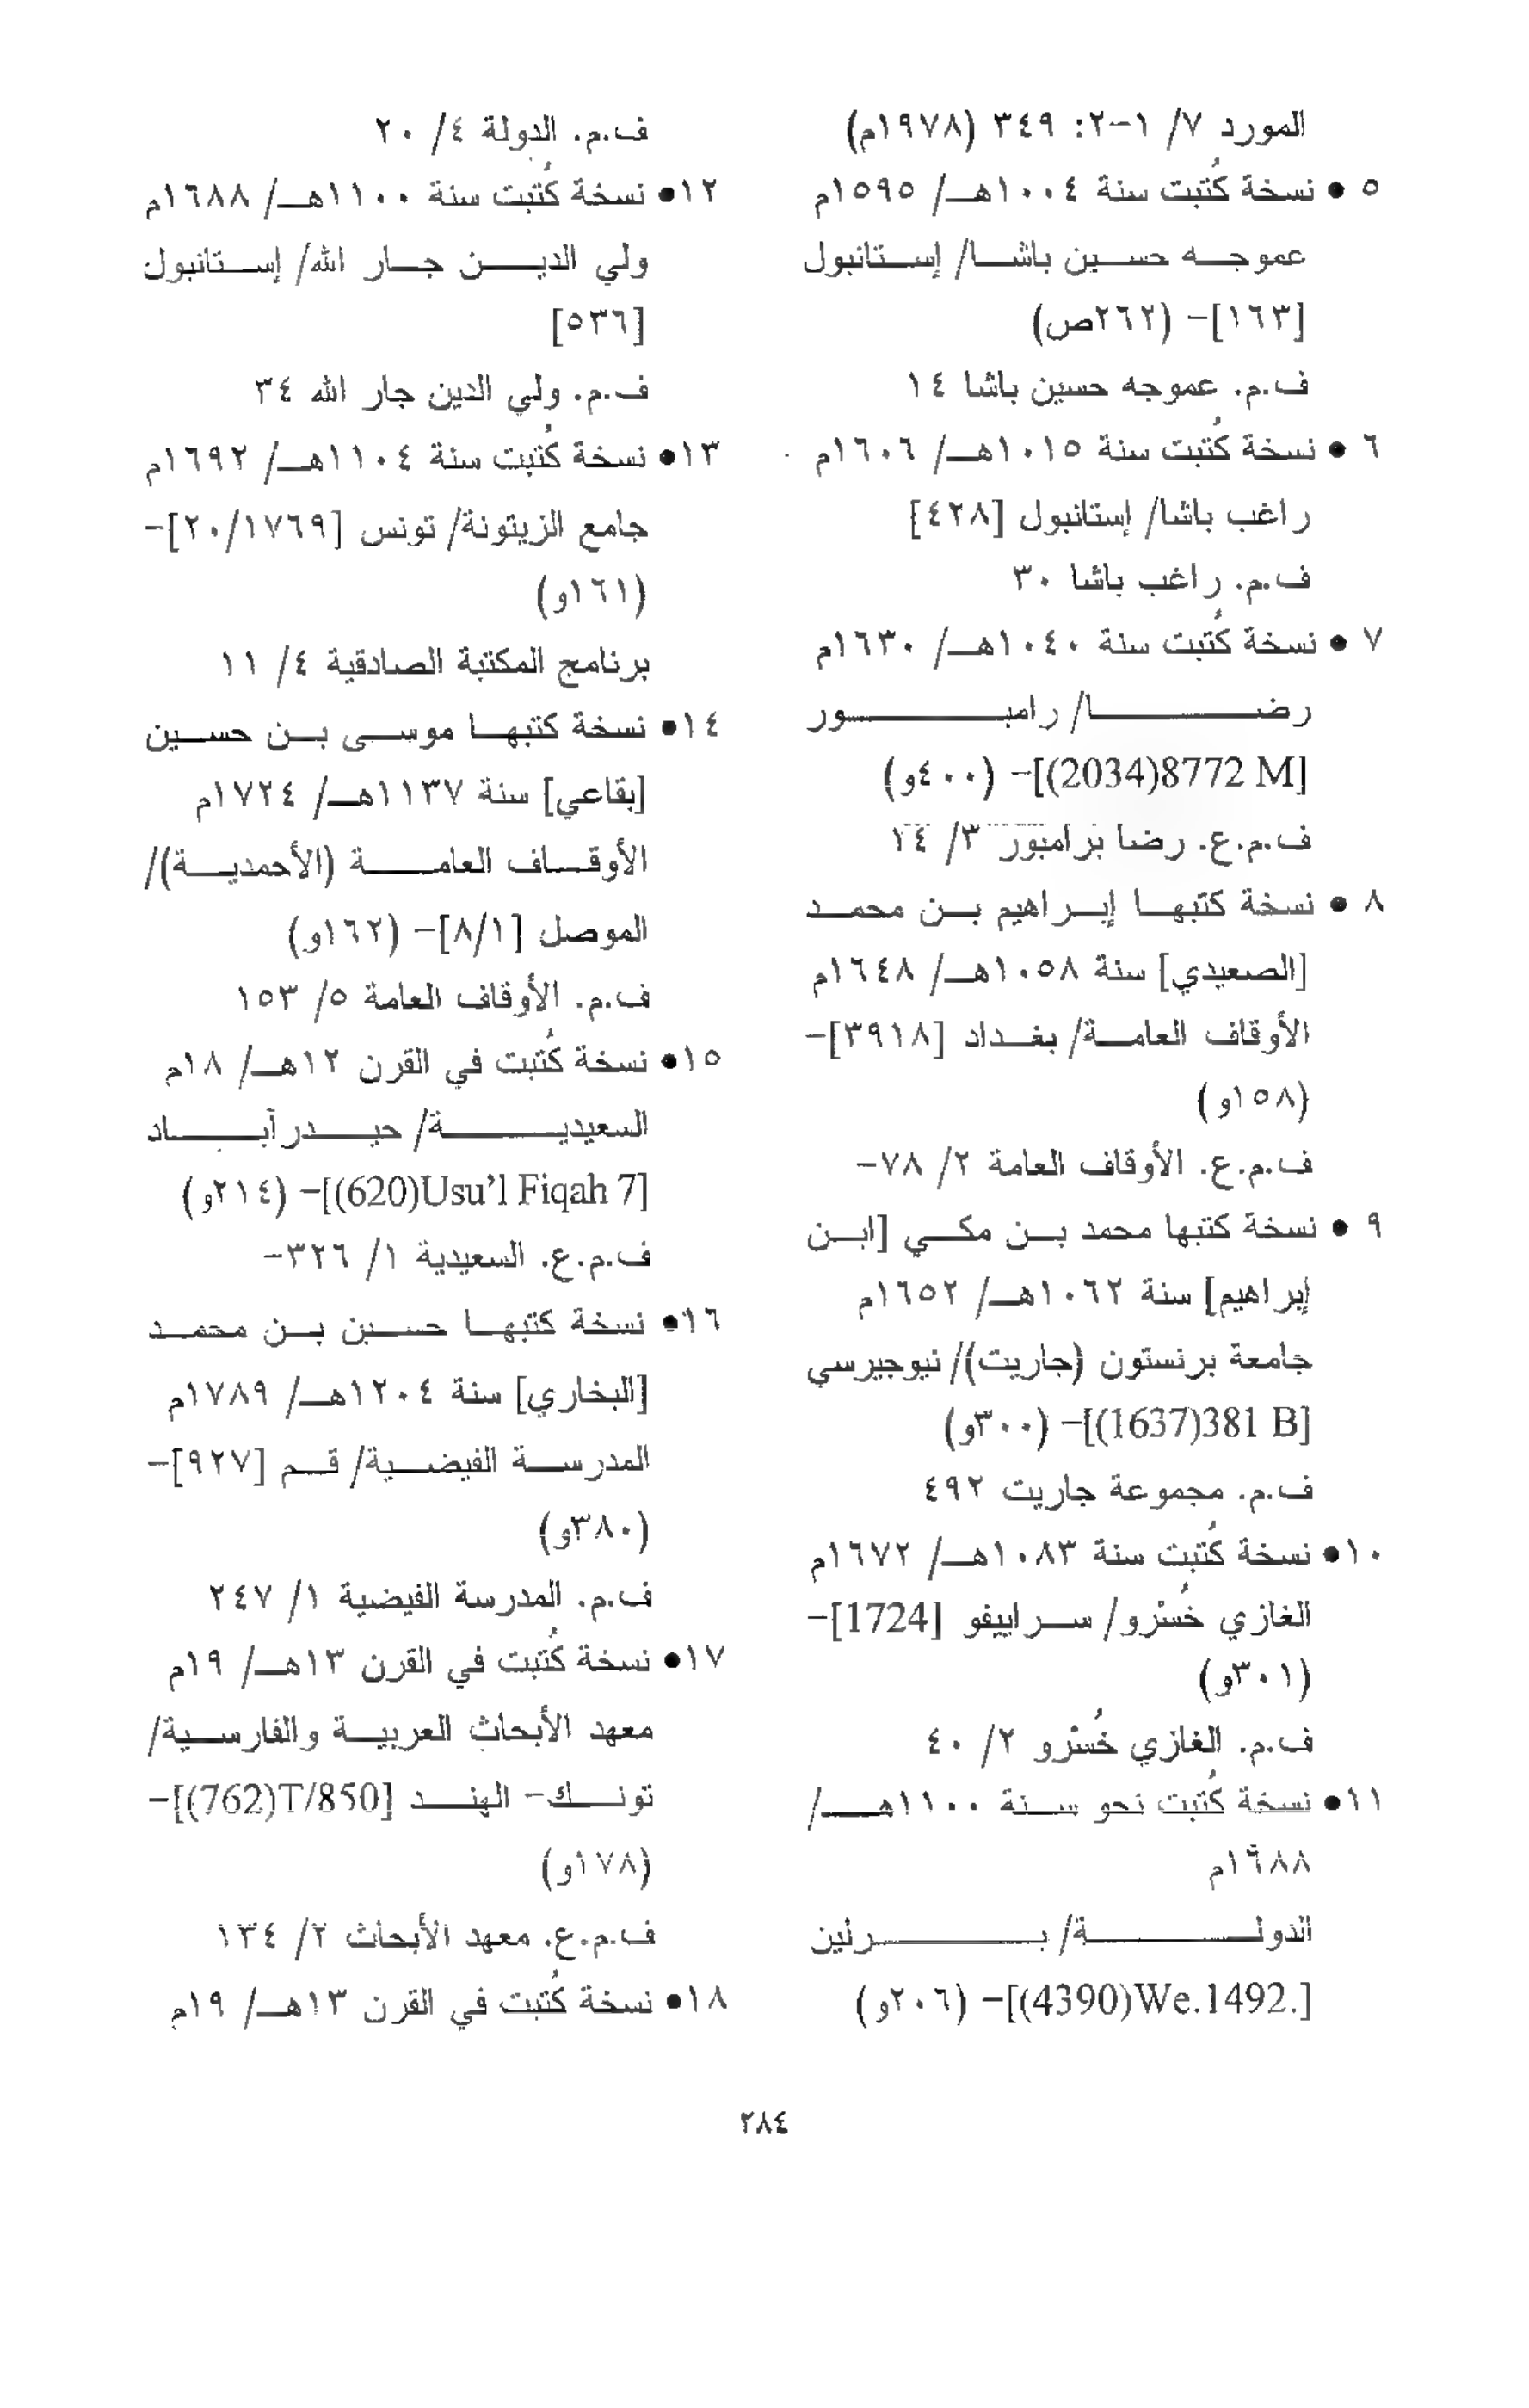 المورد ٧/ ١-٢: ٣٤٩ (١٩٧٨م)
٥ • نسخة كُتبت سنة ١٠٠٤هـ/ ١٥٩٥م
عموجه حسين باشا/ إستانبول
[١٦٣]- (٢٦٢ص)
ف.م. عموجه حسين باشا ١٤
٦ • نسخة كُتبت سنة ١٠١٥هـ/ ١٦٠٦م
راغب باشا/ إستانبول [٤٢٨]
ف.م. راغب باشا ٣٠
٧ • نسخة كُتبت سنة ١٠٤٠هـ/ ١٦٣٠م
رضا/ رامبور
[8772 M(2034)]- (٤٠٠و)
ف.م.ع. رضا برامبور ٣/ ١٤
٨ • نسخة كتبها إبراهيم بن محمد
[الصعيدي] سنة ١٠٥٨هـ/ ١٦٤٨م
الأوقاف العامة/ بغداد [٣٩١٨]-
(١٥٨و)
ف.م.ع. الأوقاف العامة ٢/ ٧٨-
٩ • نسخة كتبها محمد بن مكي [ابن
إبراهيم] سنة ١٠٦٢هـ/ ١٦٥٢م
جامعة برنستون (جاريت)/ نيوجيرسي
[381 B(1637)]- (٣٠٠و)
ف.م. مجموعة جاريت ٤٩٢
١٠• نسخة كُتبت سنة ١٠٨٣هـ/ ١٦٧٢م
الغازي خُسْرو/ سراييفو [1724]-
(٣٠١و)
ف.م. الغازي خُسْرو ٢/ ٤٠
١١• نسخة كُتبت نحو سنة ١١٠٠هـ/
١٦٨٨م
الدولة/ برلين
[We.1492.(4390)]- (٢٠٦و)
ف.م. الدولة ٤/ ٢٠
١٢• نسخة كُتبت سنة ١١٠٠هـ/ ١٦٨٨م
ولي الدين جار الله/ إستانبول
[٥٣٦]
ف.م. ولي الدين جار الله ٣٤
١٣• نسخة كُتبت سنة ١١٠٤هـ/ ١٦٩٢م
جامع الزيتونة/ تونس [٢٠/١٧٦٩]-
(١٦١و)
برنامج المكتبة الصادقية ٤/ ١١
١٤• نسخة كتبها موسى بن حسين
[بقاعي] سنة ١١٣٧هـ/ ١٧٢٤م
الأوقاف العامة (الأحمدية)/
الموصل [٨/١]- (١٦٢و)
ف.م. الأوقاف العامة ٥/ ١٥٣
١٥• نسخة كُتبت في القرن ١٢هـ/ ١٨م
السعيدية/ حيدرآباد
[Usu’l Fiqah 7(620)]- (٢١٤و)
ف.م.ع. السعيدية ١/ ٣٢٦-
١٦• نسخة كتبها حسين بن محمد
[البخاري] سنة ١٢٠٤هـ/ ١٧٨٩م
المدرسة الفيضية/ قم [٩٢٧]-
(٣٨٠و)
ف.م. المدرسة الفيضية ١/ ٢٤٧
١٧• نسخة كُتبت في القرن ١٣هـ/ ١٩م
معهد الأبحاث العربية والفارسية/
تونك- الهند [T/850(762)]-
(١٧٨و)
ف.م.ع. معهد الأبحاث ٢/ ١٣٤
١٨• نسخة كُتبت في القرن ١٣هـ/ ١٩م
٢٨٤